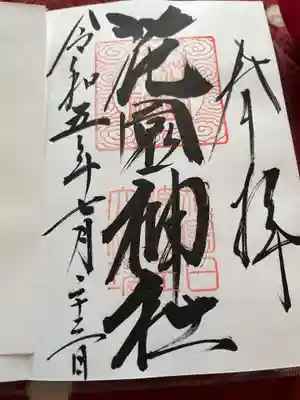 奉拝
花園神社
令和五年七月二十三日